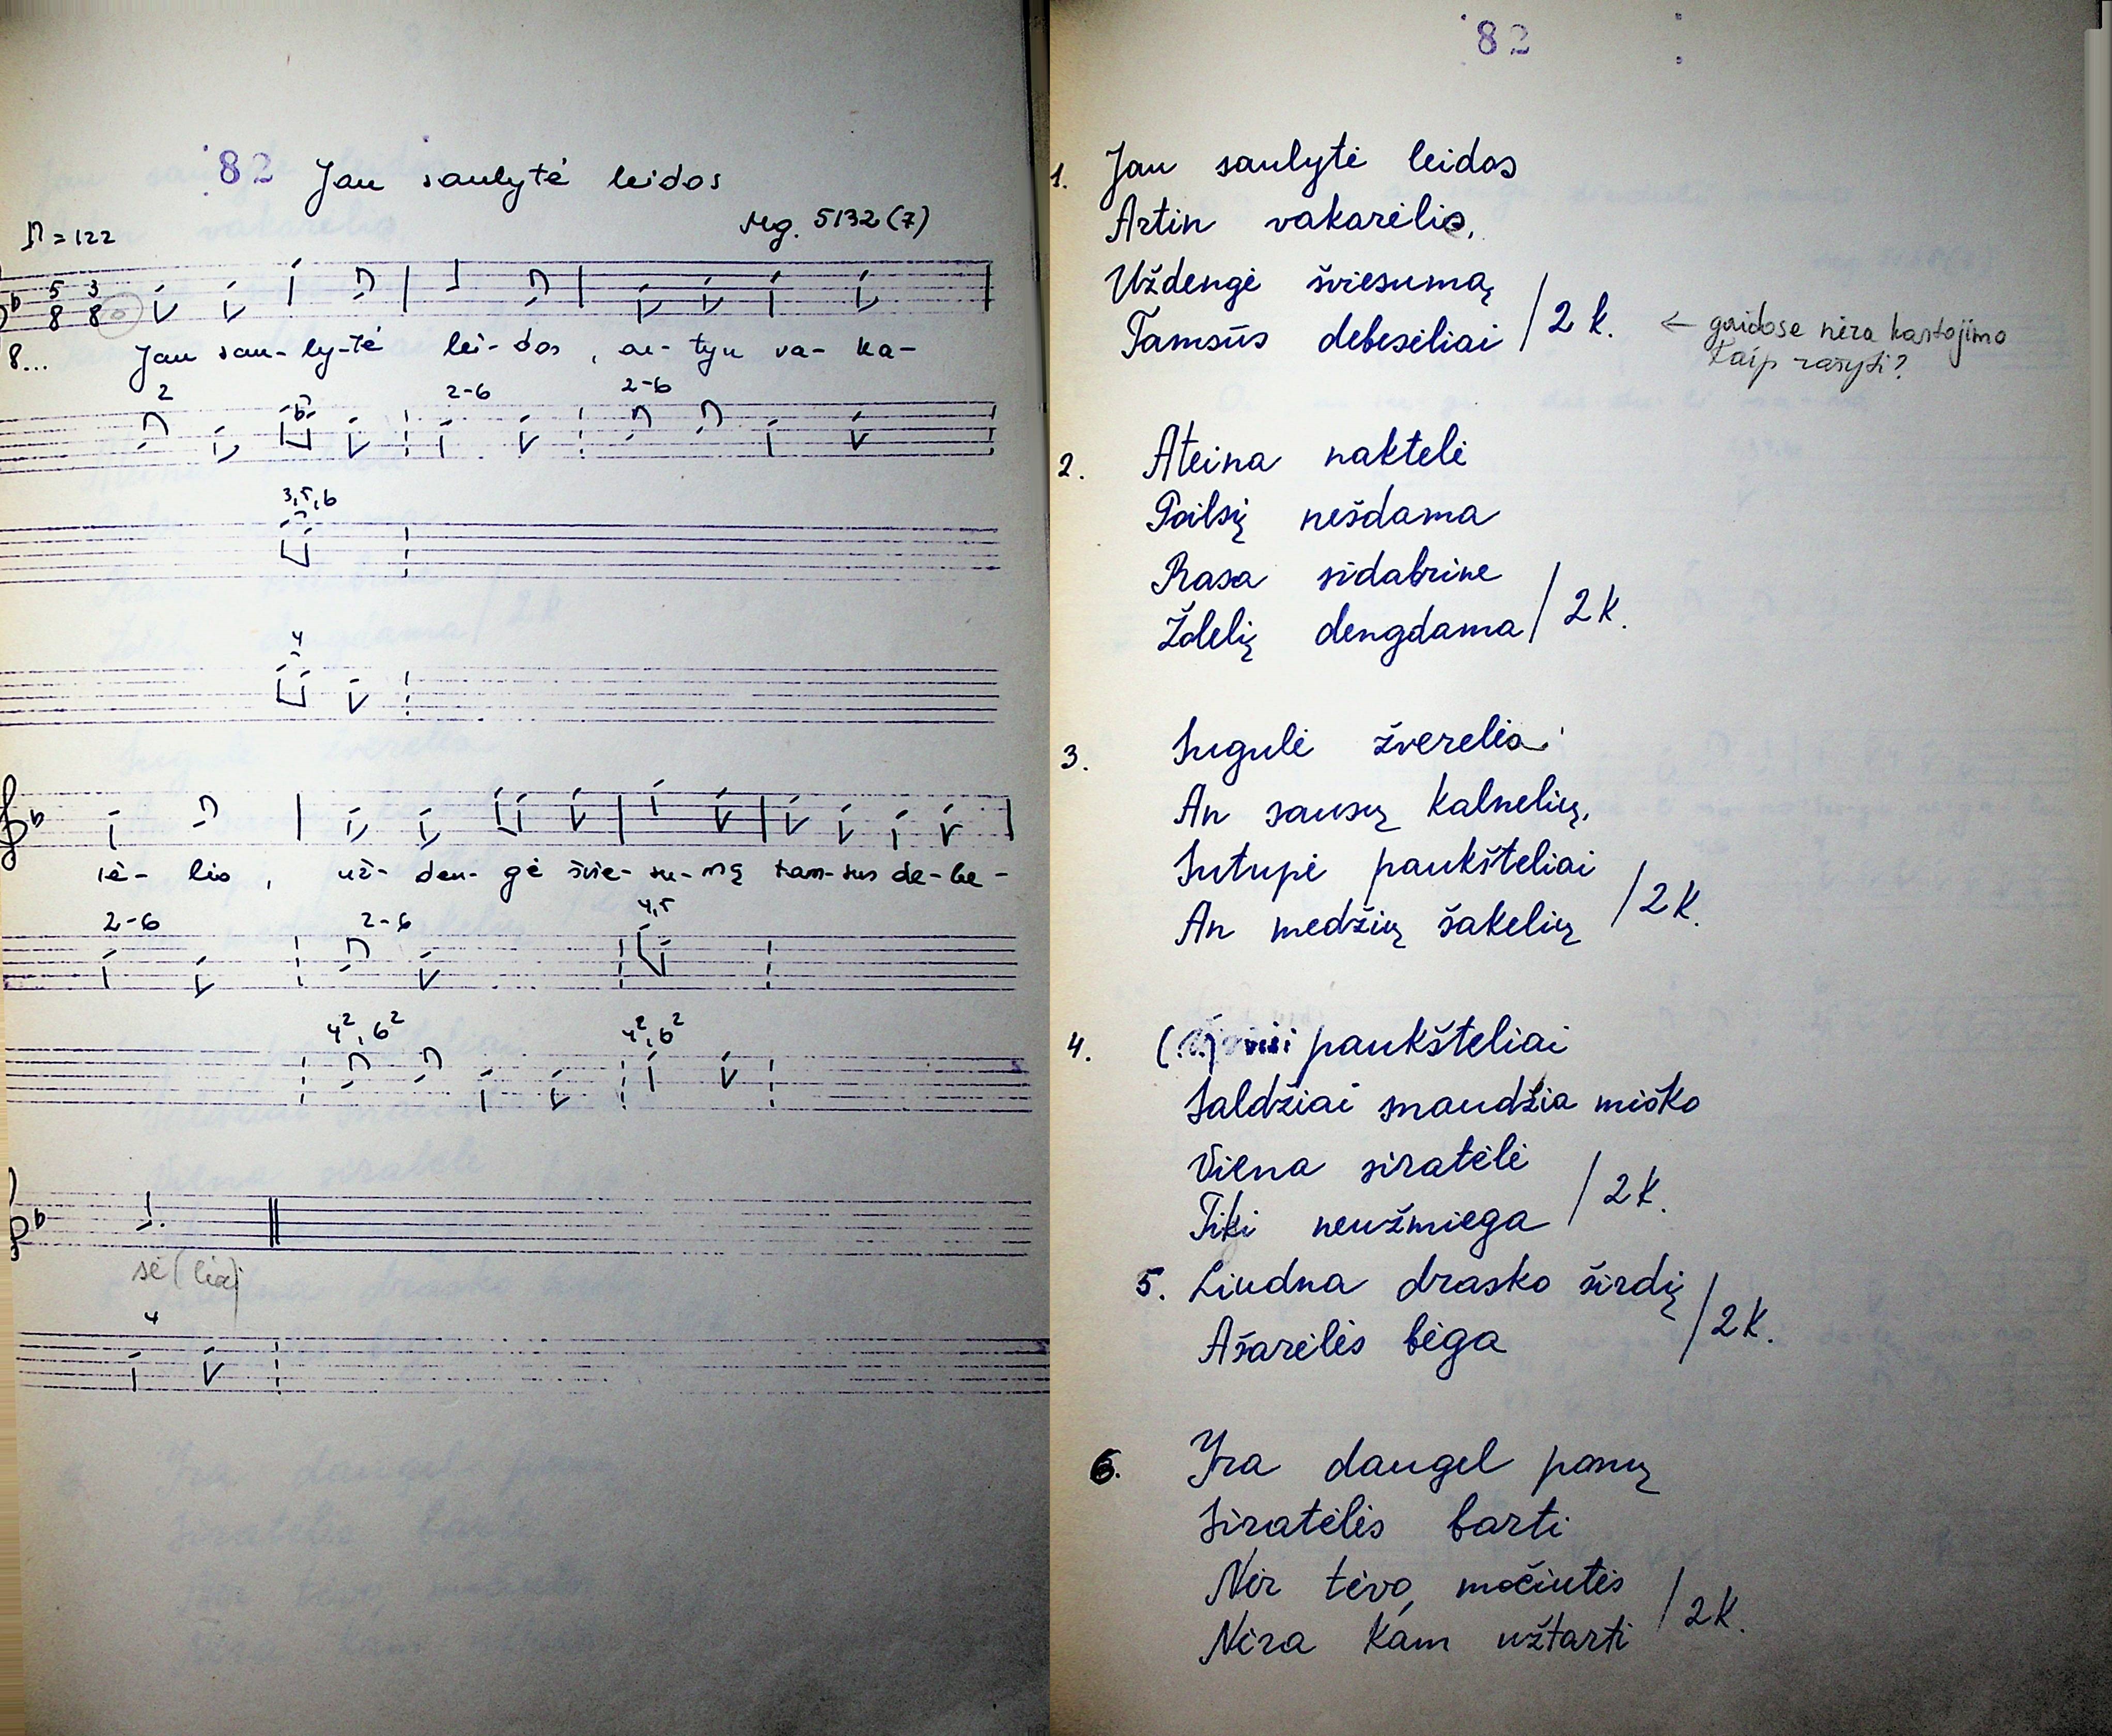 82 Jau saulytė leidos
♫ = 122
Mg. 5132 (7)
5 3
8 8
8...
Jau sau- ly-tė lei- dos , ar- tyn va- ka-
2 2-6 2-6
3,5,6
4
rė- lio , už- den- gė švie- su- mą tam-sus de-be-
2-6 2-6 4,5
4², 6² 4², 6²
sė (liai)
4
82
1. Jau saulytė leidos
Artin vakarėlis,
Uždengė šviesumą
Tamsūs debesėliai / 2 k. ← gaidose nėra kartojimo
Kaip rašyti?
2. Ateina naktelė
Poilsį nešdama
Rasa sidabrine
Žolelį dengdama / 2 k.
3. Sugulė žvereliai
An sausų kalnelių,
Sutupė paukšteliai
An medžių šakelių / 2 k.
4. visi paukšteliai
Saldžiai snaudžia miško
Viena siratėlė
Tiki neužmiega / 2 k.
5. Liudna drasko širdį
Ašarėlės bėga / 2 k.
6. Yra daugel ponų
Siratėlės barti
Nėr tėvo, močiutės
Nėra kam užtarti / 2 k.